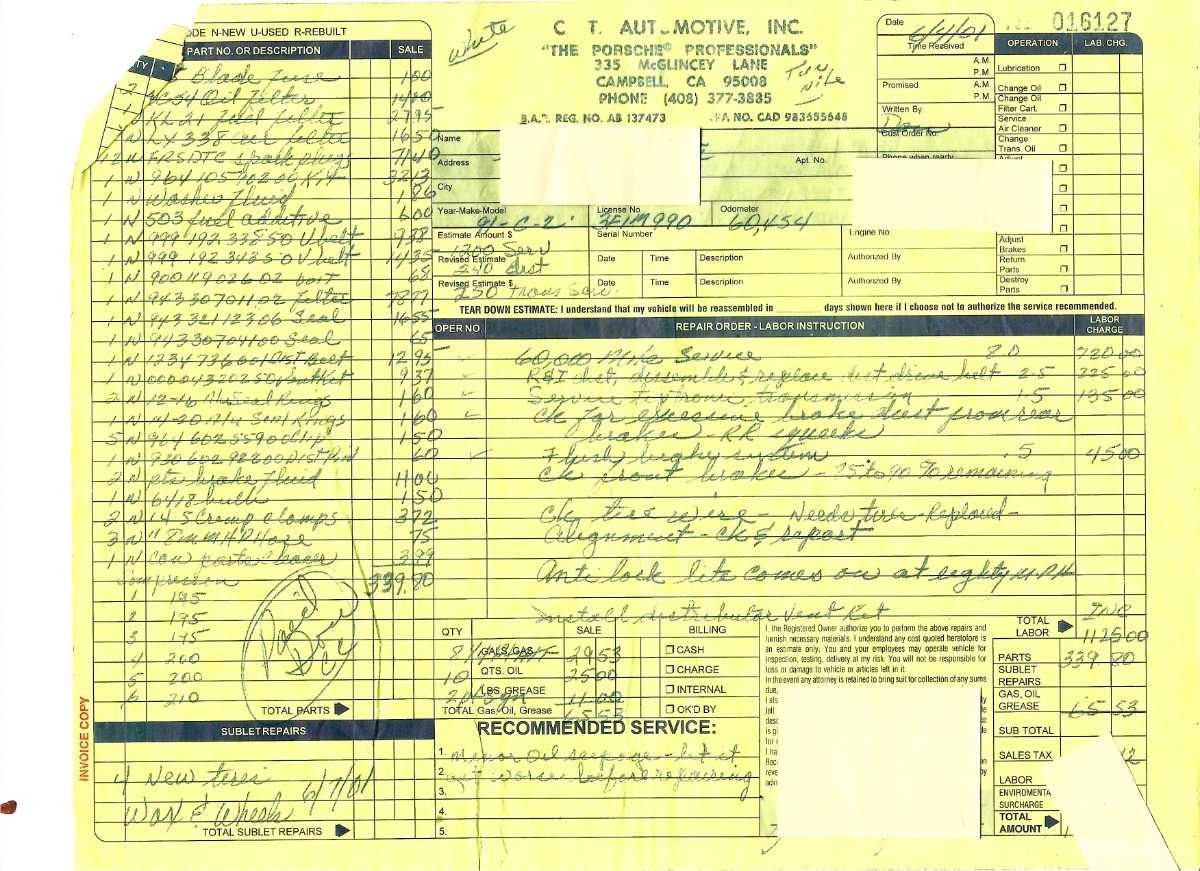 CODE N-NEW U-USED R-REBUILT
QTY PART NO. OR DESCRIPTION SALE
Blade Fuse 1 00
Oil filter 14 00
1 N KL 21 Fuel filter 27 95
1 N LX 338 air filter 16 50
12 N FR5DTC spark plugs 71 40
1 N 964 105 902 00 Kit 32 13
1 N Washer Fluid 1 86
1 N 503 fuel additive 6 00
1 N 999 192 338 50 V belt 9 38
1 N 999 192 342 50 V belt 14 35
1 N 900 119 026 02 bolt 68
1 N 943 307 011 02 filter 78 77
1 N 943 321 123 06 Seal 16 55
1 N 943 307 041 00 Seal 65
1 N 123473600 1 Dist belt 12 95
1 N 000 043 202 50 Vent Kit 9 37
2 N 12-16 Alu Seal Rings 1 60
1 N 14-20 Alu Seal Rings 1 60
5 N 964 602 559 00 clip 1 50
1 N 930 602 922 00 Dist Pin 60
2 N pts brake Fluid 11 00
1 N 6418 bulb 1 50
2 N 14 S Crimp Clamps 3 72
3 N " 8mm HP Hose 75
1 N can parts cleaner 3 99
Compression 339.80
1 195
2 195
3 195
4 200
5 200
6 210
TOTAL PARTS
SUBLET REPAIRS
4 New tires
Wax & Wheels 6/7/01
TOTAL SUBLET REPAIRS
INVOICE COPY
White
C T. AUTOMOTIVE, INC.
"THE PORSCHE® PROFESSIONALS"
335 McGLINCEY LANE
CAMPBELL, CA 95008
PHONE (408) 377-3885
B.A.R. REG. NO. AB 137473 EPA NO. CAD 983655648
Date 6/4/01
Time Received A.M. P.M.
Promised A.M. P.M.
Written By
Cust Order No.
Phone when ready
016127
OPERATION LAB. CHG.
Lubrication
Change Oil
Change Oil Filter Cart.
Service Air Cleaner
Change Trans. Oil
Adjust
Adjust Brakes
Return Parts
Destroy Parts
Name
Address Apt. No.
City
Year-Make-Model 91-C-2 License No 3FIM990 Odometer 60,454
Estimate Amount $ 1200 Serv Serial Number Engine No
Revised Estimate 240 dist Date Time Description Authorized By
Revised Estimate $ 250 Trans Serv. Date Time Description Authorized By
TEAR DOWN ESTIMATE: I understand that my vehicle will be reassembled in days shown here if I choose not to authorize the service recommended.
OPER NO. REPAIR ORDER - LABOR INSTRUCTION LABOR CHARGE
60,000 Mile Service 8.0 720 00
R&I dist, disassemble & replace dist drive belt 2.5 225 00
Service tiptronic transmission 1.5 135 00
Ck for excessive brake dust from rear
brakes - RR squeeks
Flush brake system .5 45 00
Ck front brakes - 75 to 90 % remaining
Ck tire wire - Needs tires Replaced -
Alignment - ck & report
Anti lock lite comes on at eighty M.P.H
Install distributor Vent Kit INC
QTY SALE BILLING
GALS, GAS 29 53
10 QTS. OIL 25 00
LBS. GREASE 11.00
TOTAL Gas, Oil, Grease 65 53
CASH
CHARGE
INTERNAL
OK'D BY
RECOMMENDED SERVICE:
1. Minor Oil seepage - let it
2. get worse before repairing
3.
4.
5.
I, the Registered Owner authorize you to perform the above repairs and
furnish necessary materials. I understand any cost quoted heretofore is
an estimate only. You and your employees may operate vehicle for
inspection, testing, delivery at my risk. You will not be responsible for
loss or damage to vehicle or articles left in it.
In the event any attorney is retained to bring suit for collection of any sums
due,
TOTAL LABOR 1125 00
PARTS 339.80
SUBLET REPAIRS
GAS, OIL GREASE 65 53
SUB TOTAL
SALES TAX
LABOR
ENVIROMENTA SURCHARGE
TOTAL AMOUNT